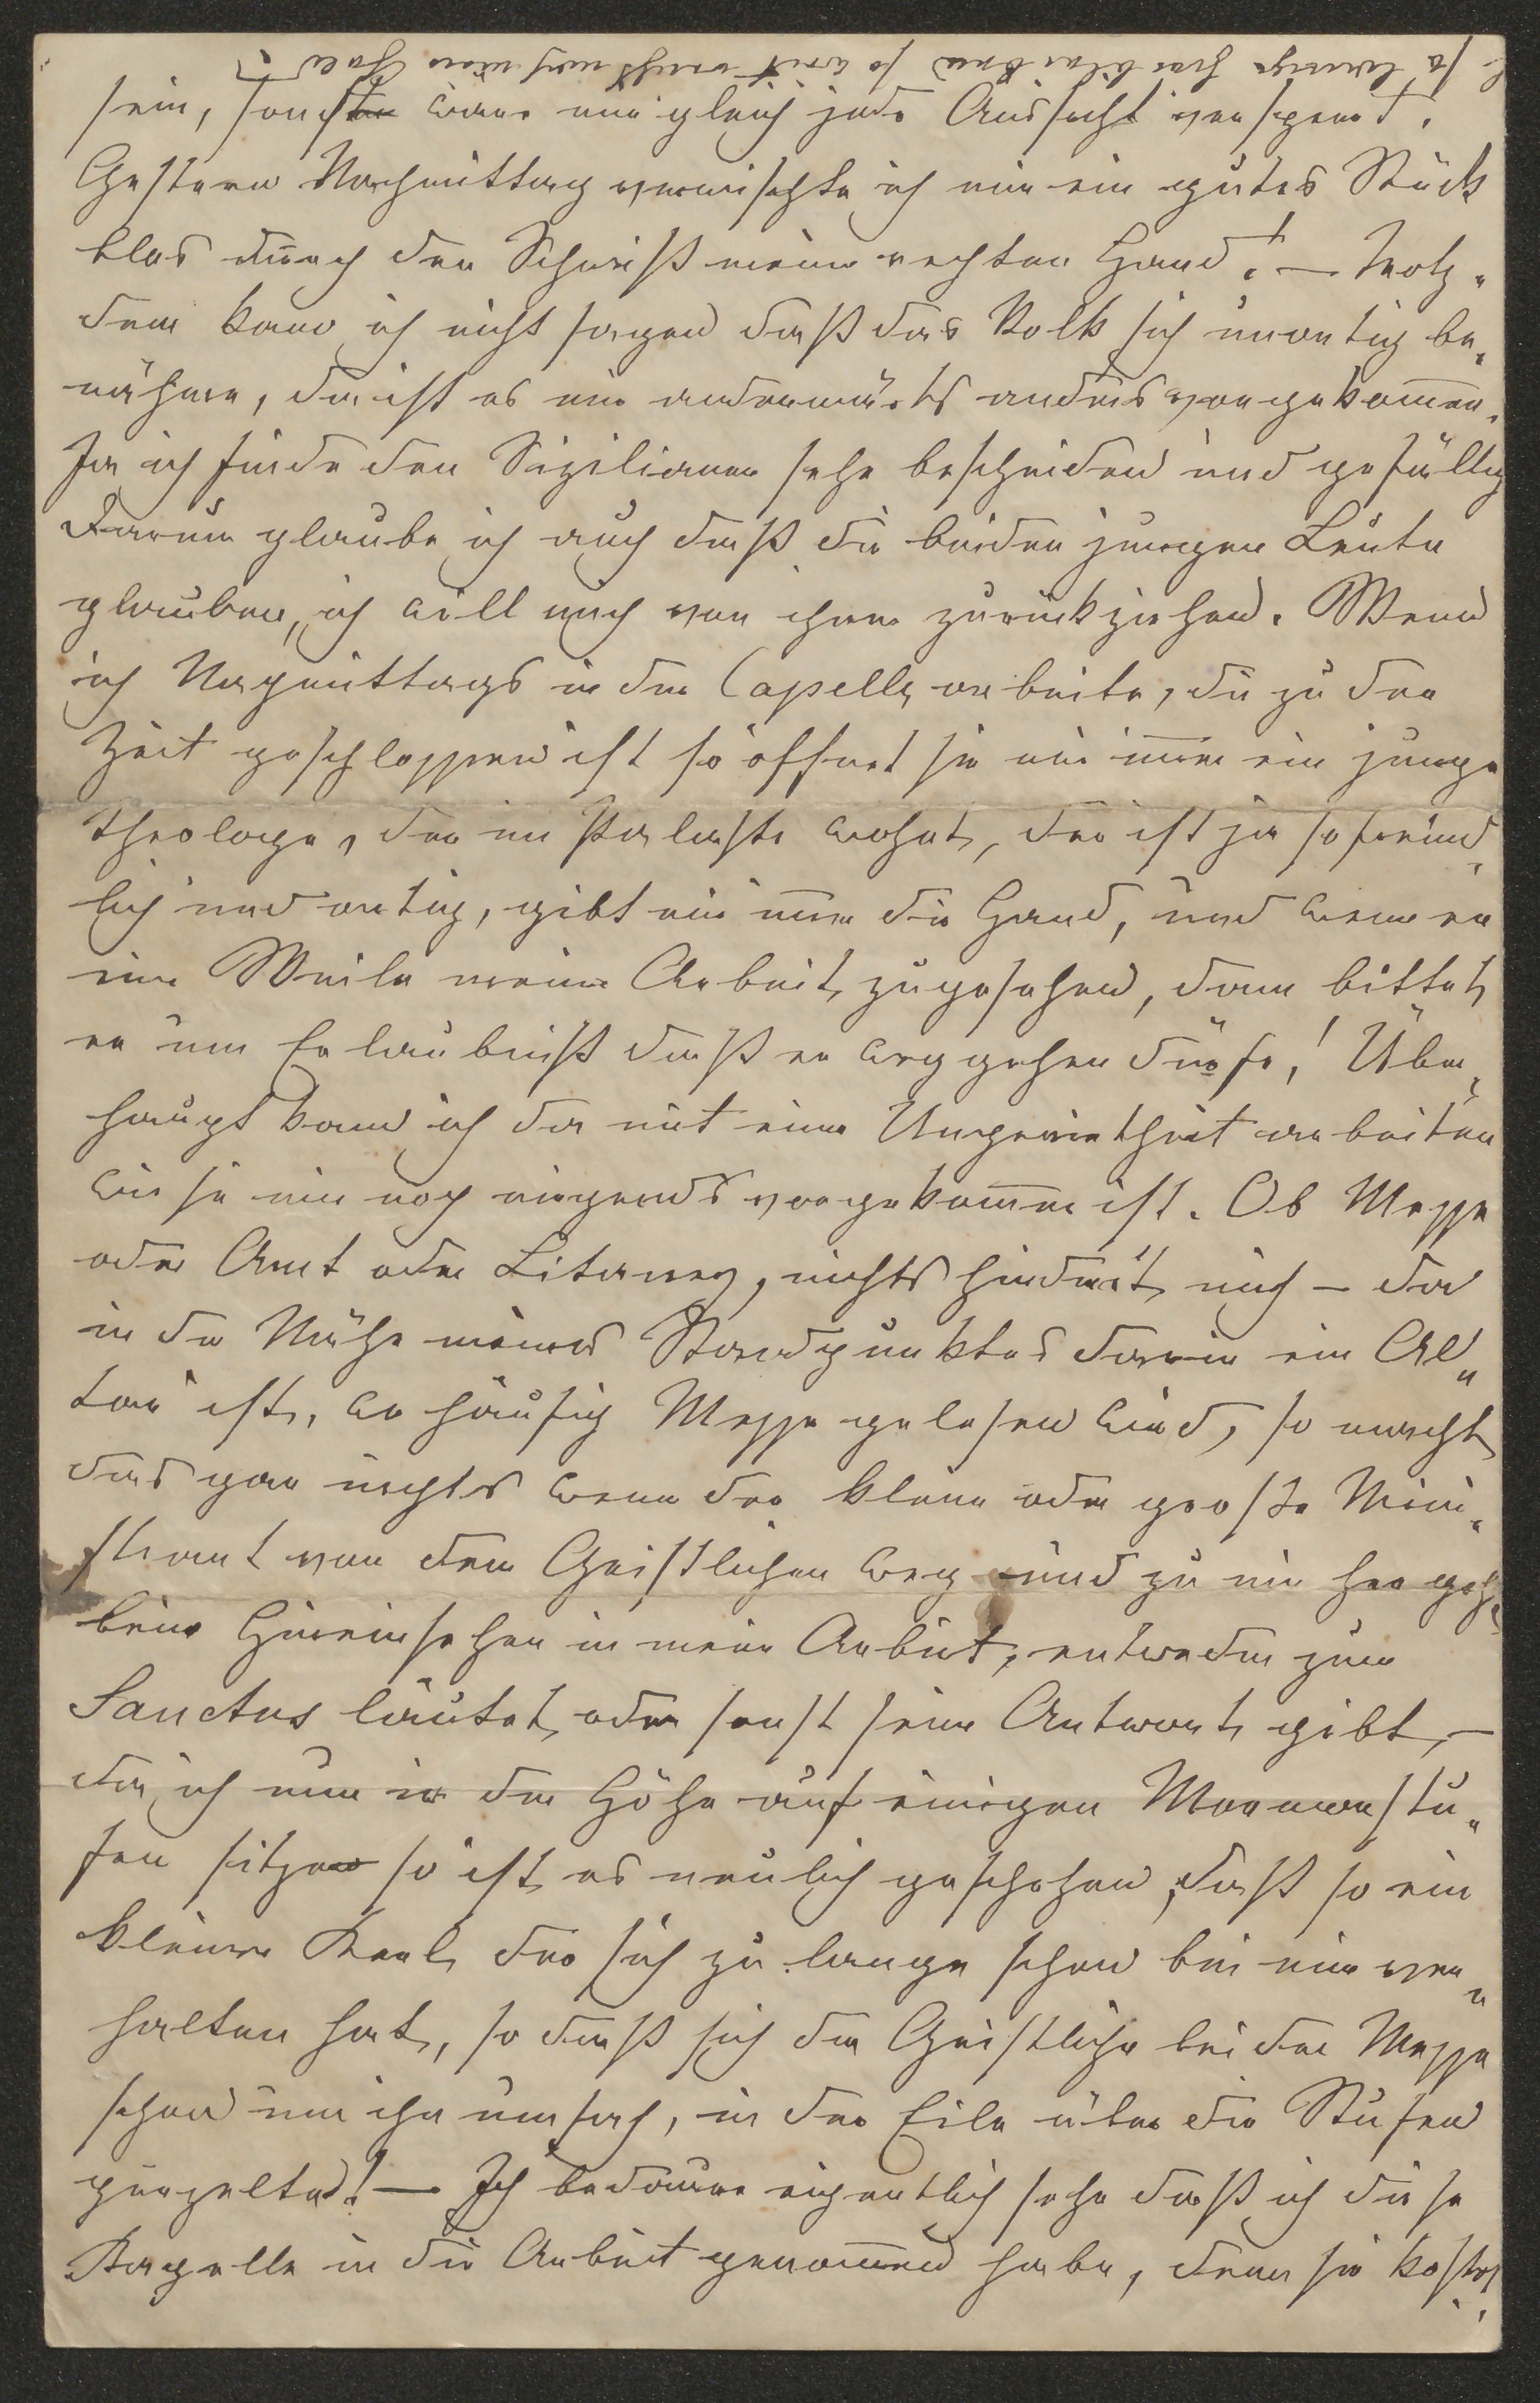 so lange hier bleiben so weit nicht noch mein Geld
sein, sonst wäre mir gleich jede Aussicht versperrt.
Gestern Nachmittag verwischte ich mir ein gutes Stück
blos durch den Schweiß meiner rechten Hand! — Trotz„
dem kann ich nicht sagen daß das Volk sich unartig be„
nähme, da ist es mir anderwärts anders vorgekom̅en.
Ja ich finde den Sizilianer sehr bescheiden und gefällig
Darum glaube ich auch daß die beiden jungen Leute
glauben, ich will mich von ihnen zurückziehen. Wenn
ich Nachmittags in der Capelle arbeite, die zu der
Zeit geschlossen ist so öffnet sie mir im̅er ein junger
Theologe, der im Palaste wohnt, der ist ja so freund„
lich und artig, gibt mir im̅er die Hand, und wenn er
eine Weile meiner Arbeit zugesehen, dann bittet
er um Erlaubniß daß er weggehen dürfe! Über„
haupt kann ich da mit einer Ungenirtheit arbeiten
wie sie mir noch nirgends vorgekom̅en ist. Ob Messe
oder Amt oder Litaney, nichts hindert mich – da
in der Nähe meines Standpunktes darin ein Al„
tar ist, wo häufig Messe gelesen wird, so macht
das gar nichts wenn der kleine oder große Mini„
strant von dem Geistlichen weg und zu mir her geht
beim Hineinsehen in meine Arbeit, entweder zum
Sanctus läutet oder sonst seine Antwort gibt, —
da ich nun in der Höhe auf einigen Marmorstu„
fen sitze so ist es neulich geschehen, daß so ein
kleiner Kerl, der sich zu lange schon bei mir ver„
halten hat, so daß sich der Geistliche bei der Messe
schon um ihn umsah, in der Eile über die Stufen
purzelte! — Ich bedaure eigentlich sehr daß ich diese
Kapelle in die Arbeit genom̅en habe, denn sie kostet